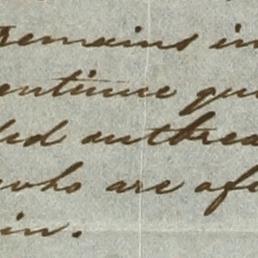 remains in
continue qu
ded outbrea
who are afr
in.